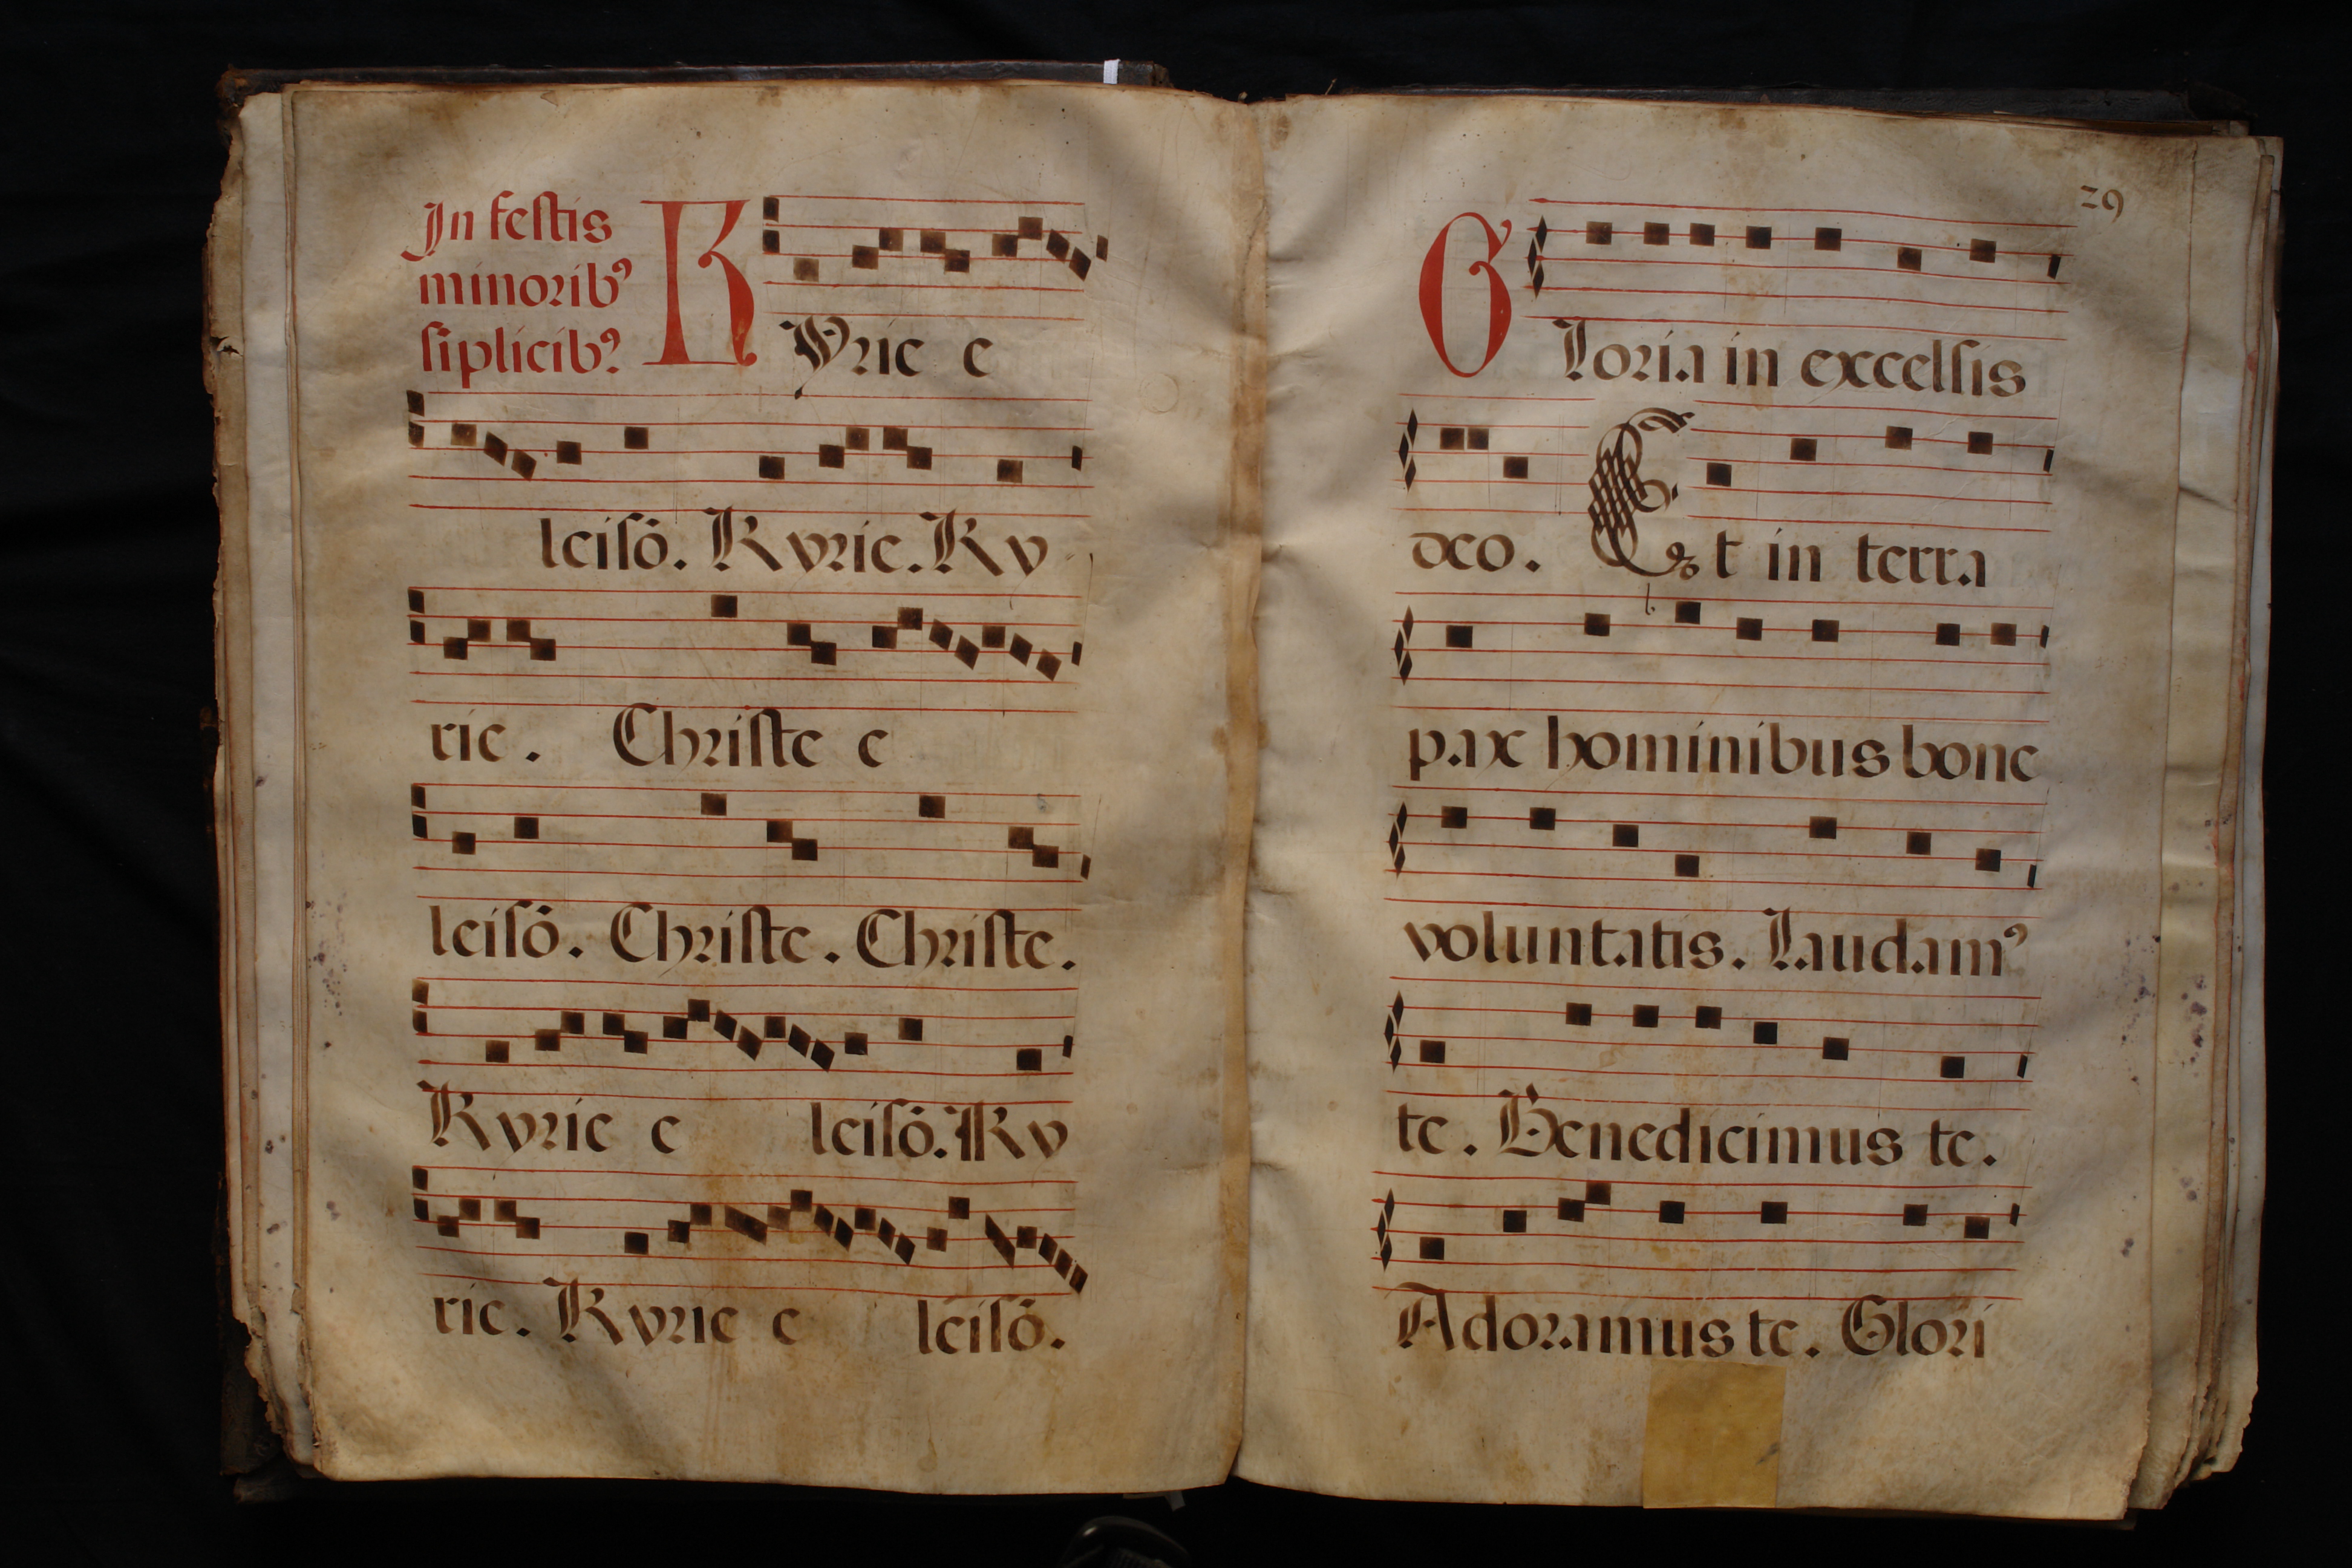 In festis
minorib⁹
siplicib⁹
KYrie e
leisō. Kyrie. Ky
rie. Christe e
leisō. Christe. Christe.
Kyrie e leisō. Ky
rie. Kyrie e leisō.
29
Gloria in excelsis
deo. Et in terra
pax hominibus bone
voluntatis. Laudam⁹
te. Benedicimus te.
Adoramus te. Glori